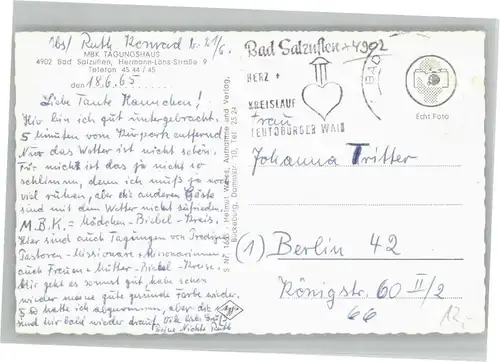 Abs/ Ruth Konrad b. 21/6.
MBK TAGUNGSHAUS
4902 Bad Salzuflen, Hermann-Löns-Straße 9
Telefon 45 44 / 45
den 18.6.65
Liebe Tante Hannchen!
Hier bin ich gut untergebracht.
5 Minuten vom Kurpark entfernt
Nur das Wetter ist nicht schön.
Für mich ist das ja nicht so
schlimm, denn ich muß ja noch
viel ruhen, aber die anderen Gäste
sind mit dem Wetter nicht zufrieden.
M.B.K. = Mädchen-Bibel-Kreis.
Hier sind auch Tagungen von Prediger
Pastoren-Missionare, Missionarinnen
auch Frauen + Mütter-Bibel-Kreise.
Mir geht es sonst gut, habe schon
wieder meine gute gesunde Farbe wieder.
5 hatte ich abgenommen, aber die
sind hir bald wieder drauf. Viele liebe
Deine Nichte Ruth
S Nr. 1650 Helmut Welge, Aufnahme und Verlag,
Bückeburg, Dammstr. Tel. 25 24
Agfa
Bad Salzuflen 4902
HERZ +
KREISLAUF
TEUTOBURGER WALD
BAD
Echt Foto
Frau
Johanna Tritter
(1) Berlin 42
Königstr. 60 II/2
66
12,-